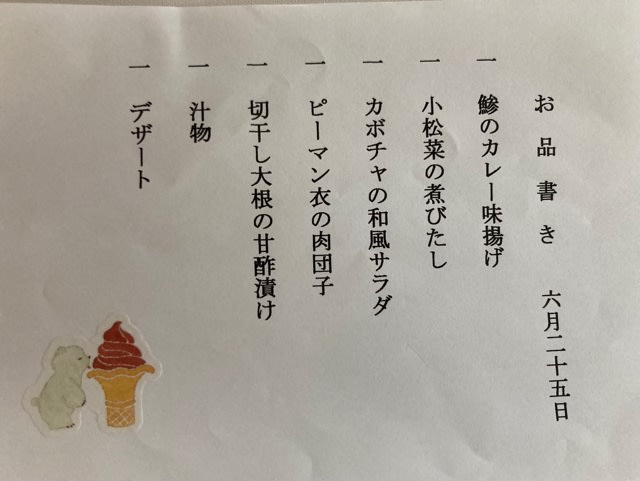 お品書き 六月二十五日
一 鯵のカレー味揚げ
一 小松菜の煮びたし
一 カボチャの和風サラダ
一 ピーマン衣の肉団子
一 切干し大根の甘酢漬け
一 汁物
一 デザート